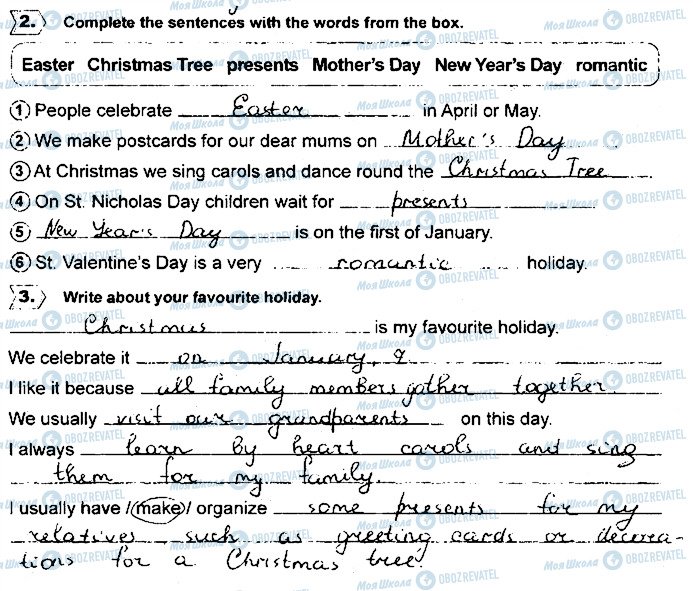 2. Complete the sentences with the words from the box.
Easter Christmas Tree presents Mother's Day New Year's Day romantic
1 People celebrate Easter in April or May.
2 We make postcards for our dear mums on Mother's Day
3 At Christmas we sing carols and dance round the Christmas Tree
4 On St. Nicholas Day children wait for presents
5 New Year's Day is on the first of January.
6 St. Valentine's Day is a very romantic holiday.
3. Write about your favourite holiday.
Christmus is my favourite holiday.
We celebrate it on January,
I like it because all family members gather together.
We usually visit our grandparents on this day.
I always learn by heart carols and sing
them for my family.
I usually have / make / organize some presents for my
relatives such as greeting cards or decora-
tions for a Christmas tree.
МояШкола OBOZREVATEL